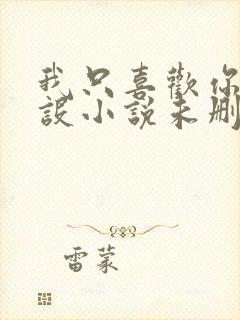 我只喜歡你
設小說未刪
雷蒙